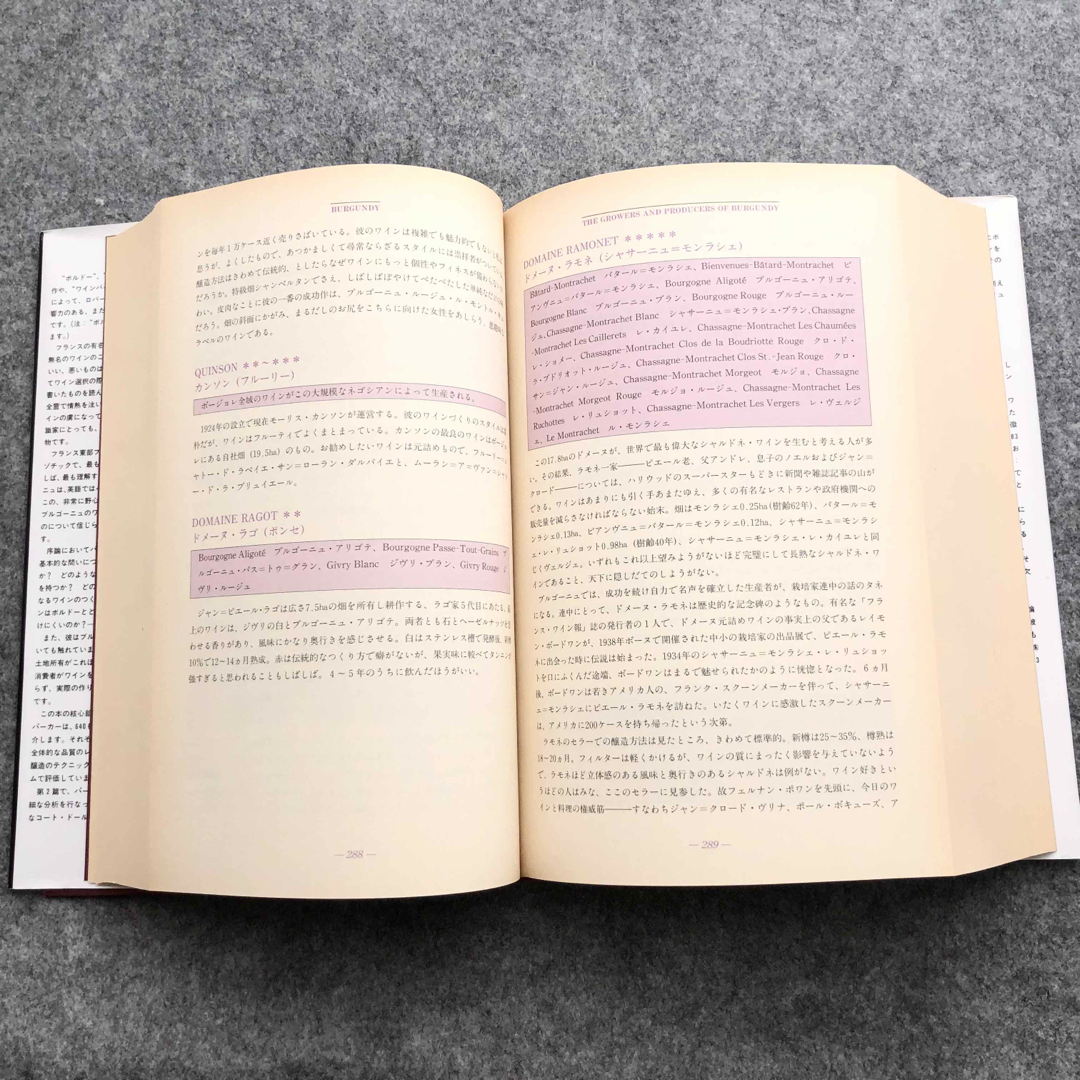 BURGUNDY
ンを毎年1万ケース近く売りさばいている。彼のワインは複雑でも魅力的でもない
思うが、よくしたもので、あつかましくて尋常ならざるスタイルには崇拝者がついている
醸造方法はきわめて伝統的、としたらなぜワインにもっと個性やフィネスが備わらない
だろうか。特級畑シャンベルタンでさえ、しばしばぼやけてべたべたした単純な
わい。皮肉なことに彼の一番の成功作は、ブルゴーニュ・ルージュ・ル・モントル・キュ
だろう。畑の斜面にかがみ、まるだしのお尻をこちらに向けた女性をあしらう、悪趣味
ラベルのワインである。
QUINSON **~***
カンソン(フルーリー)
ボージョレ全域のワインがこの大規模なネゴシアンによって生産される。
1924年の設立で現在モーリス・カンソンが運営する。彼のワインづくりのスタイルは
朴だが、ワインはフルーティでよくまとまっている。カンソンの最良のワインはボージ
レにある自社畑(19.5ha)のもの。お勧めしたいワインは元詰めもので、フルーリー
ャトー・ド・ラベイエ・サン=ローラン・ダルパイエと、ムーラン=ア=ヴァン=シャ
ー・ド・ラ・ブリュイエール。
DOMAINE RAGOT **
ドメーヌ・ラゴ(ポンセ)
Bourgogne Aligoté ブルゴーニュ・アリゴテ、Bourgogne Passe-Tout-Grains ブ
ルゴーニュ・パス=トゥ=グラン、Givry Blanc ジヴリ・ブラン、Givry Rouge ジ
ヴリ・ルージュ
ジャン=ピエール・ラゴは広さ7.5haの畑を所有し耕作する、ラゴ家5代目にあたる。最
上のワインは、ジヴリの白とブルゴーニュ・アリゴテ。両者とも石とヘーゼルナッツを思
わせる香りがあり、風味にかなり奥行きを感じさせる。白はステンレス槽で発酵後、新樽
10%で12〜14ヵ月熟成。赤は伝統的なつくり方で癖がないが、果実味に較べてタンニン
強すぎると思われることもしばしば。4〜5年のうちに飲んだほうがいい。
—288—
THE GROWERS AND PRODUCERS OF BURGUNDY
DOMAINE RAMONET *****
ドメーヌ・ラモネ(シャサーニュ=モンラシェ)
Bâtard-Montrachet バタール=モンラシェ、Bienvenues-Bâtard-Montrachet ビ
アンヴニュ=バタール=モンラシェ、Bourgogne Aligoté ブルゴーニュ・アリゴテ、
Bourgogne Blanc ブルゴーニュ・ブラン、Bourgogne Rouge ブルゴーニュ・ルー
ジュ、Chassagne-Montrachet Blanc シャサーニュ=モンラシェ・ブラン、Chassagne
-Montrachet Les Caillerets レ・カイユレ、Chassagne-Montrachet Les Chaumées
レ・ショメー、Chassagne-Montrachet Clos de la Boudriotte Rouge クロ・ド・
ラ・ブドリオット・ルージュ、Chassagne-Montrachet Clos St.-Jean Rouge クロ・
サン=ジャン・ルージュ、Chassagne-Montrachet Morgeot モルジョ、Chassagne
-Montrachet Morgeot Rouge モルジョ・ルージュ、Chassagne-Montrachet Les
Ruchottes レ・リュショット、Chassagne-Montrachet Les Vergers レ・ヴェルジ
ェ、Le Montrachet ル・モンラシェ
この17.8haのドメーヌが、世界で最も偉大なシャルドネ・ワインを生むと考える人が多
い。その結果、ラモネ一家——ピエール老、父アンドレ、息子のノエルおよびジャン=
クロード——については、ハリウッドのスーパースターもどきに新聞や雑誌記事の山が
できる。ワインはあまりにも引く手あまたゆえ、多くの有名なレストランや政府機関への
販売量を減らさなければならない始末。畑はモンラシェ0.25ha(樹齢62年)、バタール=
モンラシェ0.13ha、ビアンヴニュ=バタール=モンラシェ0.12ha、シャサーニュ=モンラシ
ェ・レ・リュショット0.98ha(樹齢40年)、シャサーニュ=モンラシェ・レ・カイユレと同
じくヴェルジェ。いずれもこれ以上望みようがないほど完璧にして長熟なシャルドネ・ワ
インであること、天下に隠しだてのしようがない。
ブルゴーニュでは、成功を続け自力で名声を確立した生産者が、栽培家連中の話のタネ
になる。連中にとって、ドメーヌ・ラモネは歴史的な記念碑のようなもの。有名な「フラ
ンス・ワイン報」誌の発行者の1人で、ドメーヌ元詰めワインの事実上の父であるレイモ
ン・ボードワンが、1938年ボーヌで開催された中小の栽培家の出品展で、ピエール・ラモ
ネに出会った時に伝説は始まった。1934年のシャサーニュ=モンラシェ・レ・リュショッ
トを口にふくんだ途端、ボードワンはまるで魅せられたかのように恍惚となった。6ヵ月
後、ボードワンは若きアメリカ人の、フランク・スクーンメーカーを伴って、シャサーニ
ュ=モンラシェにピエール・ラモネを訪ねた。いたくワインに感激したスクーンメーカー
は、アメリカに200ケースを持ち帰ったという次第。
ラモネのセラーでの醸造方法は見たところ、きわめて標準的。新樽は25〜35%、樽熟は
18〜20ヵ月。フィルターは軽くかけるが、ワインの質にまったく影響を与えていないよう
で、ラモネほど立体感のある風味と奥行きのあるシャルドネは例がない。ワイン好きとい
うほどの人はみな、ここのセラーに見参した。故フェルナン・ポワンを先頭に、今日のワ
インと料理の権威筋——すなわちジャン=クロード・ヴリナ、ポール・ボキューズ、ア
—289—